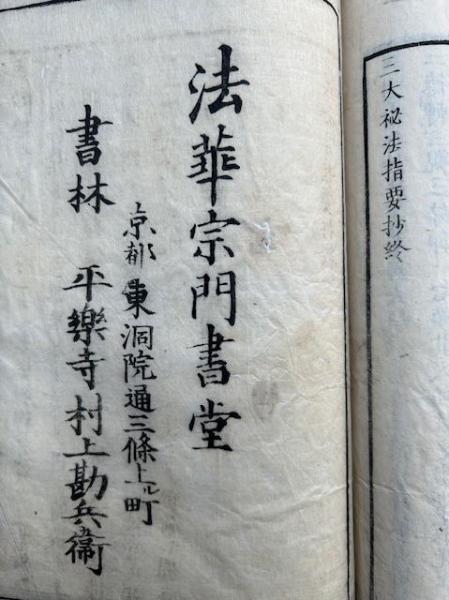 三大祕法指要抄終
法華宗門書堂
京都東洞院通三條上ル町
書林 平樂寺村上勘兵衞